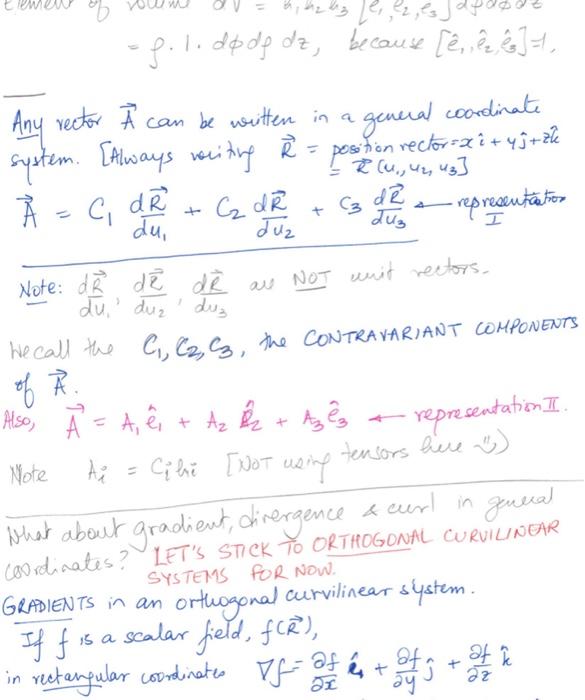 Element of volume dV = h₁h₂h₃ [ê₁, ê₂, ê₃] dρdφdz
= ρ. 1. dφdρ dz, because [ê₁, ê₂, ê₃]=1,
Any vector A⃗ can be written in a general coordinate
system. [Always writing R⃗ = position vector = x î + y ĵ + z k̂
= R⃗ (u₁, u₂, u₃]
A⃗ = C₁ dR⃗/du₁ + C₂ dR⃗/du₂ + C₃ dR⃗/du₃ ← representation I
Note: dR⃗/du₁, dR⃗/du₂, dR⃗/du₃ are NOT unit vectors.
We call the C₁, C₂, C₃, the CONTRAVARIANT COMPONENTS
of A⃗.
Also, A⃗ = A₁ ê₁ + A₂ ê₂ + A₃ ê₃ ← representation II.
Note Aᵢ = Cᵢhᵢ [NOT using tensors here :)]
What about gradient, divergence & curl in general
coordinates? LET'S STICK TO ORTHOGONAL CURVILINEAR
SYSTEMS FOR NOW.
GRADIENTS in an orthogonal curvilinear system.
If f is a scalar field, f(R⃗),
in rectangular coordinates ∇f = ∂f/∂x î + ∂f/∂y ĵ + ∂f/∂z k̂